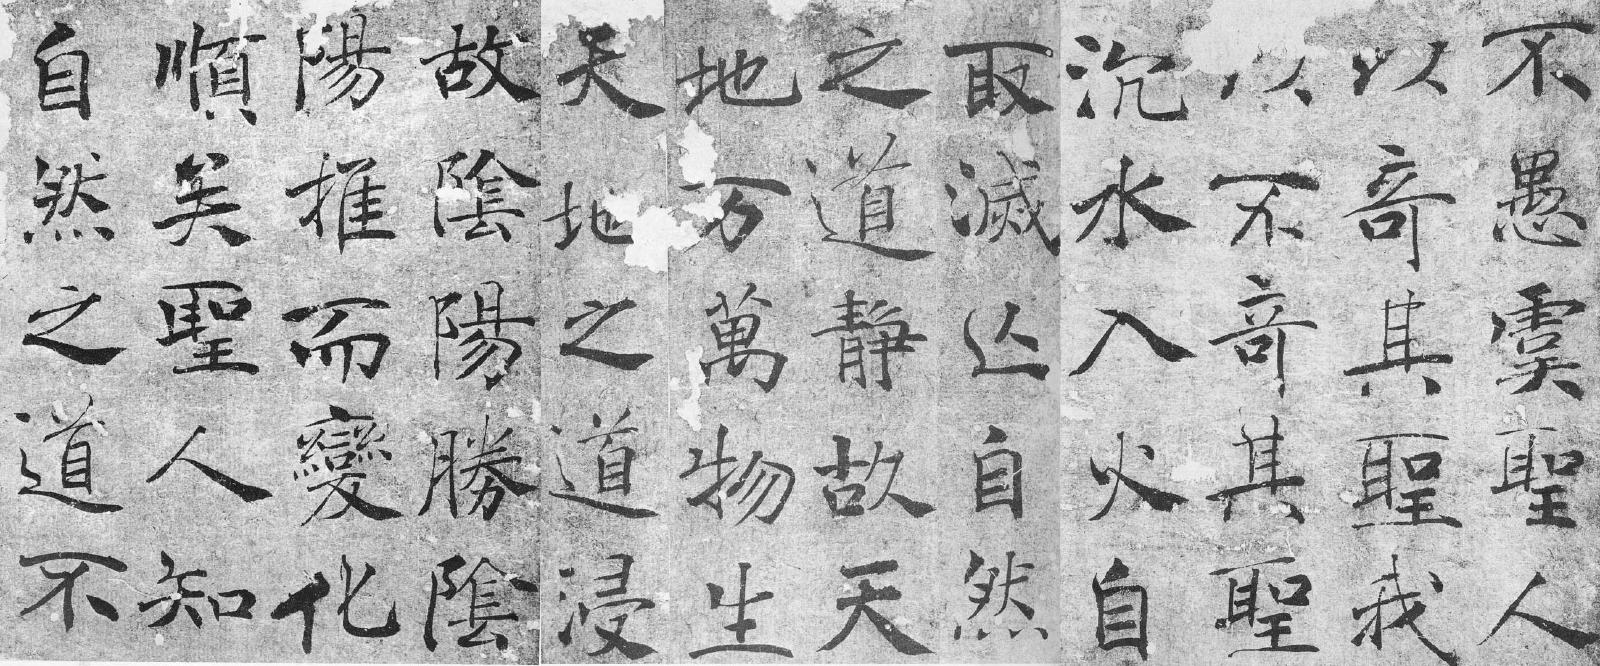 不愚虞聖人
以奇其聖我
以不奇其聖
沉水入火自
取滅亾自然
之道静故天
地万萬物生
天地之道浸
故陰陽勝陰
陽推而變化
順矣聖人知
自然之道不